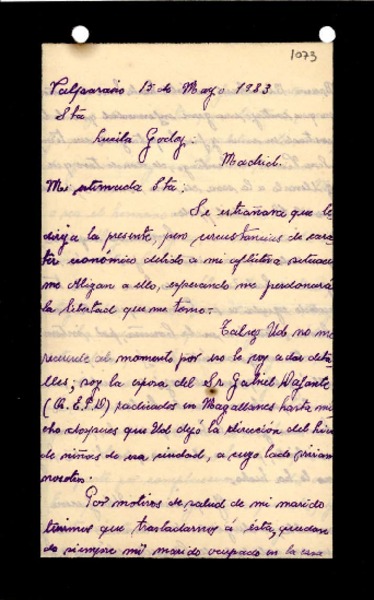 1073
Valparaiso 15 de Mayo 1933
Sta
Lucila Godoy:
Madrid.
Mi estimada Sta:
Se estrañara que le
dirija la presente, pero circustancias de carac
ter económico debido a mi aflitiva situacion
me obligan a ello, esperando me perdonará
la libertad que me tomo:-
Talvez Ud no me
recuerde al momento por eso le voy a dar deta
lles; soy la esposa del Sr Gabriel
(Q.E.P.D) radicados en Magallanes hasta mu
cho despues que Ud dejó la direccion del liceo
de niñas de esa ciudad, a cuyo lado viviamos
nosotros.
Por motivos de salud de mi marido
tuvimos que trasladarnos á ésta, quedan
do siempre mi marido ocupado en la casa